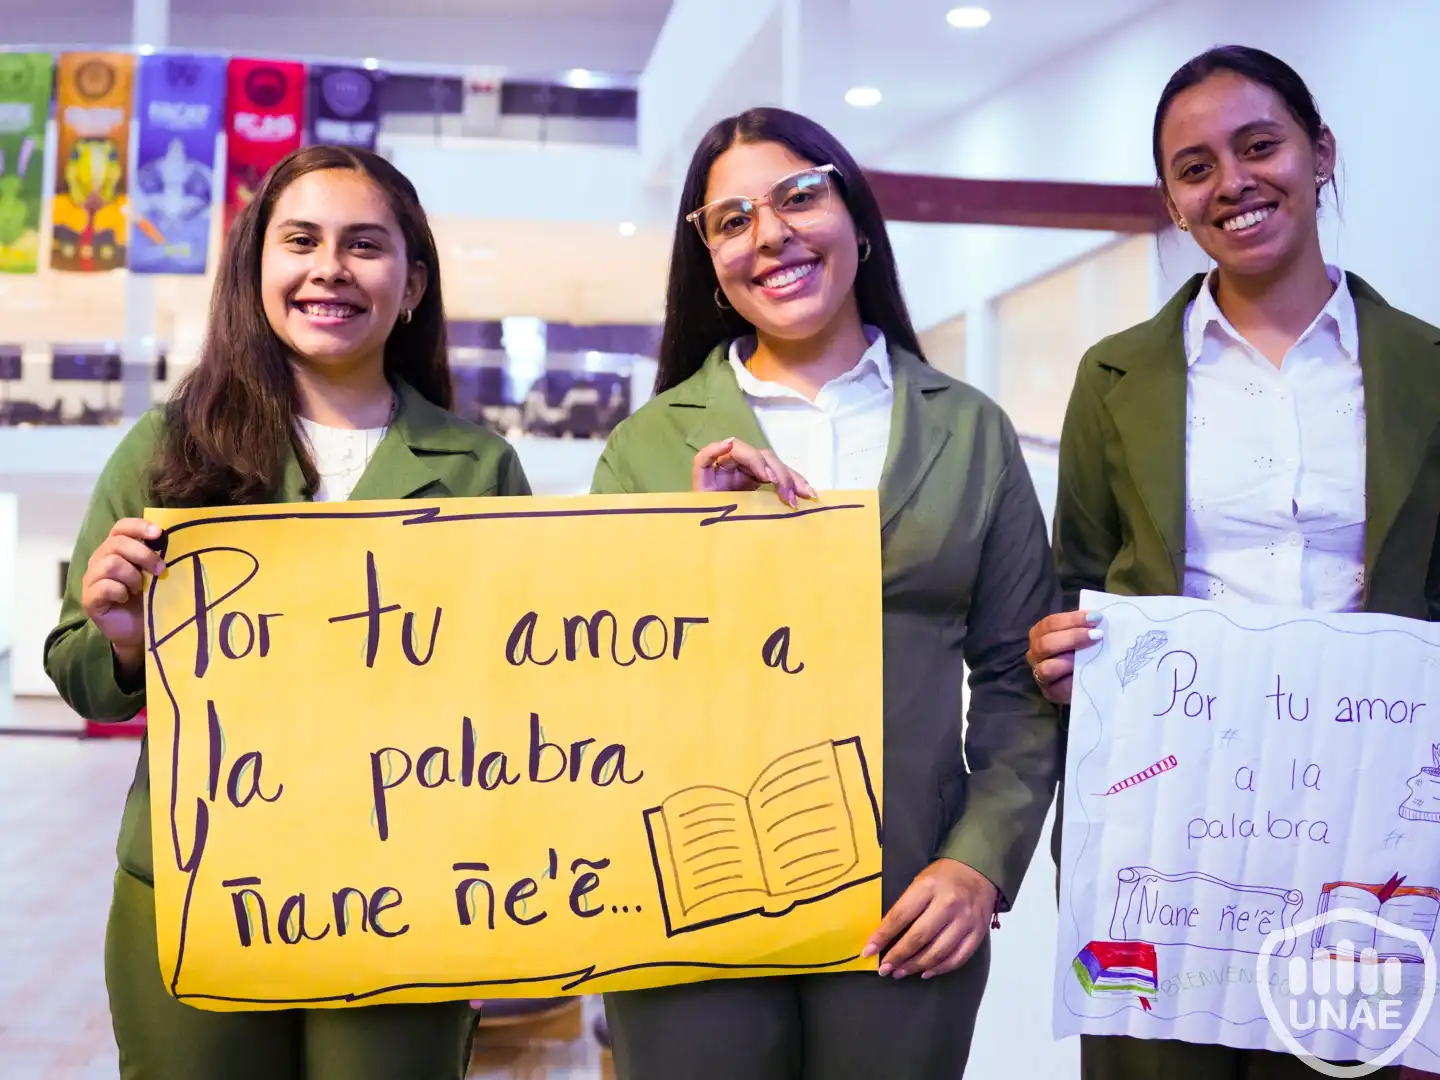 Por tu amor a
la palabra
ñane ñe'ẽ...
Por tu amor
a la
palabra
Ñane ñe'ẽ
UNAE